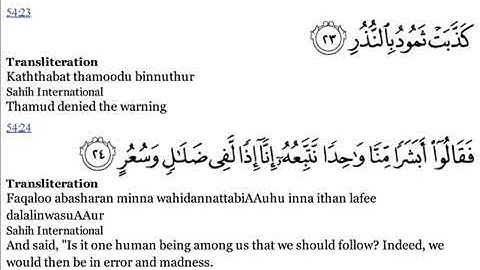 54:23
كَذَّبَتْ ثَمُودُ بِٱلنُّذُرِ ٢٣
Transliteration
Kaththabat thamoodu binnuthur
Sahih International
Thamud denied the warning
54:24
فَقَالُوٓا۟ أَبَشَرًا مِّنَّا وَٰحِدًا نَّتَّبِعُهُۥٓ إِنَّآ إِذًا لَّفِى ضَلَٰلٍ وَسُعُرٍ ٢٤
Transliteration
Faqaloo abasharan minna wahidannattabiAAuhu inna ithan lafee
dalalinwasuAAur
Sahih International
And said, "Is it one human being among us that we should follow? Indeed, we
would then be in error and madness.